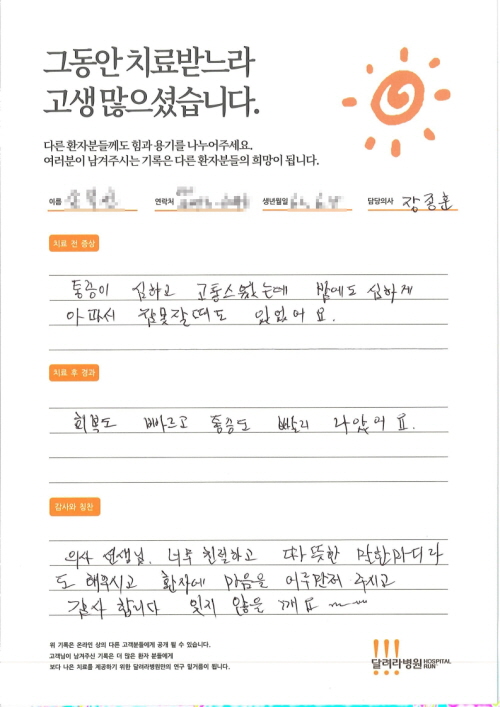 그동안 치료받느라
고생 많으셨습니다.
다른 환자분들께도 힘과 용기를 나누어주세요.
여러분이 남겨주시는 기록은 다른 환자분들의 희망이 됩니다.
이름 연락처 생년월일 담당의사 장종훈
치료 전 증상
통증이 심하고 고통스웠는데 밤에도 심하게
아파서 잠못잘때도 있었어요.
치료 후 경과
회복도 빠르고 통증도 빨리 나았어요.
감사와 칭찬
의사 선생님. 너무 친절하고 따뜻한 말한마디라
도 해주시고 환자에 마음을 어루만저 주시고
감사 합니다 잊지 않을 께요 ~~~
위 기록은 온라인 상의 다른 고객분들에게 공개 될 수 있습니다.
고객님이 남겨주신 기록은 더 많은 환자 분들에게
보다 나은 치료를 제공하기 위한 달려라병원만의 연구 밑거름이 됩니다.
달려라병원 HOSPITAL RUN